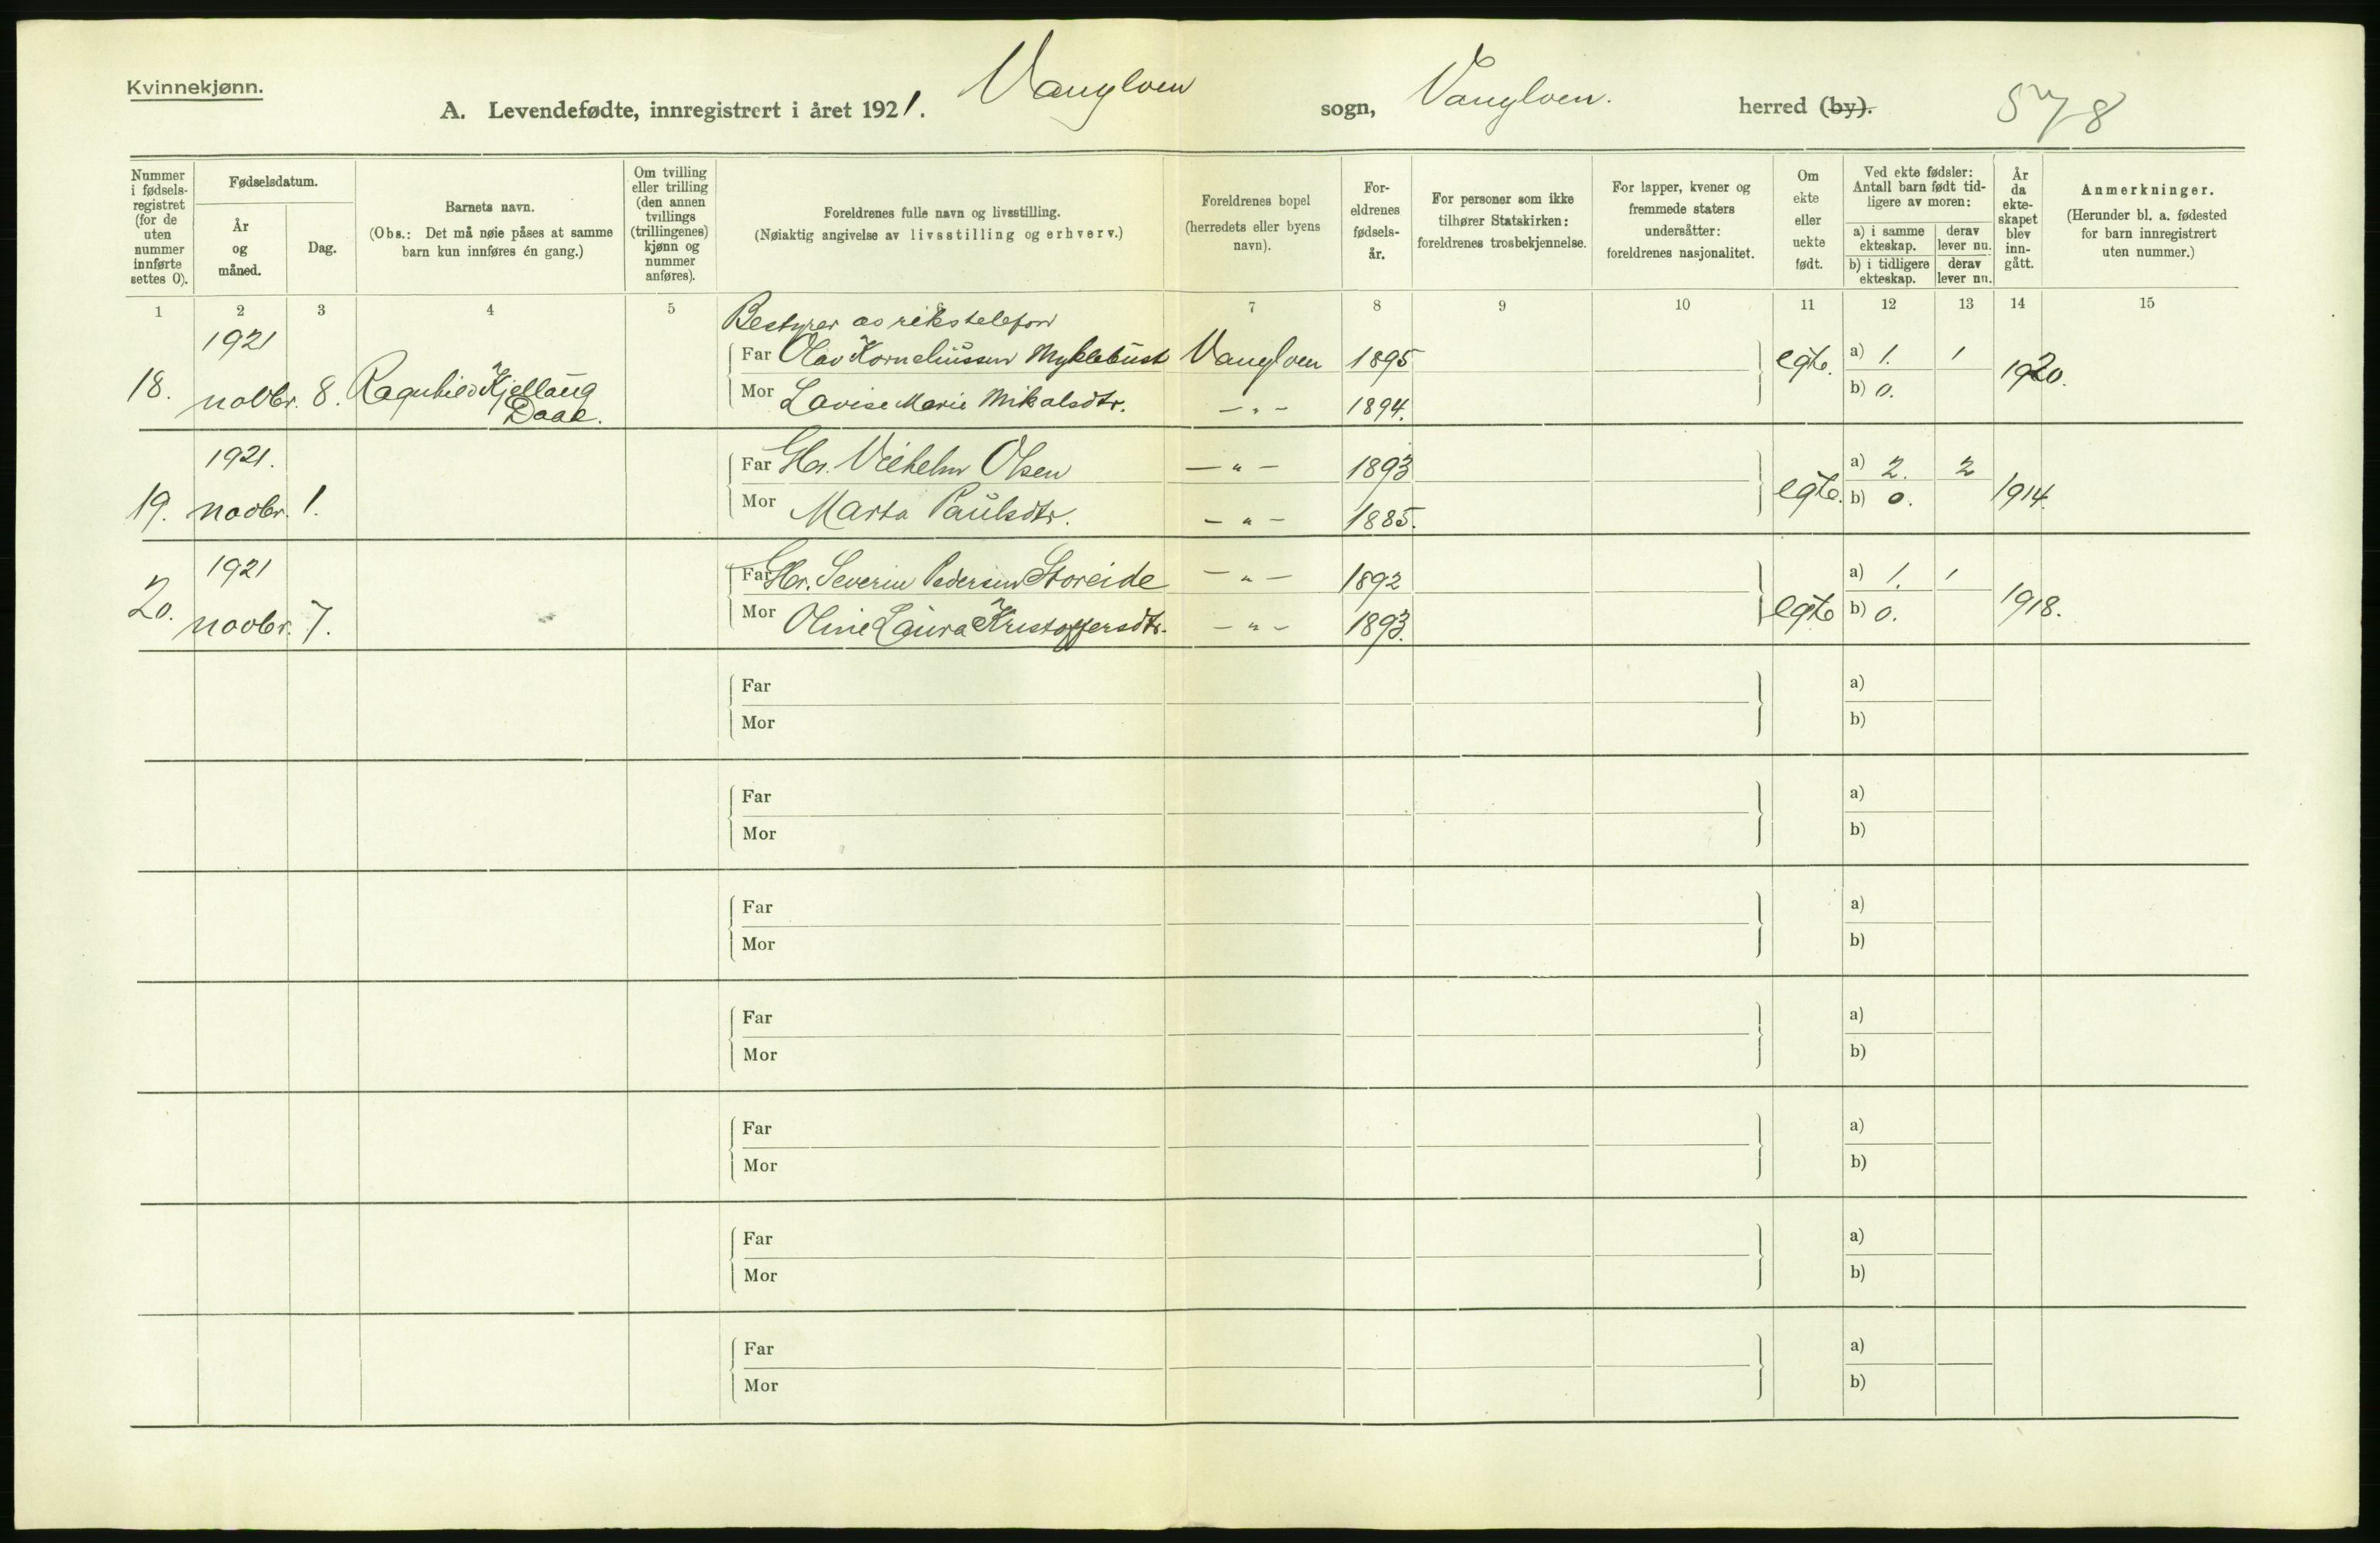 Kvinnekjønn.
A. Levendefødte, innregistrert i året 1921. Vanylven sogn, Vanylven. herred (by). 578
Nummer i fødsels-registret (for de uten nummer innførte settes 0).
Fødselsdatum.
År og måned.
Dag.
Barnets navn.
(Obs.: Det må nøie påses at samme barn kun innføres én gang.)
Om tvilling eller trilling (den annen tvillings (trillingenes) kjønn og nummer anføres).
Foreldrenes fulle navn og livsstilling.
(Nøiaktig angivelse av livsstilling og erhverv.)
Foreldrenes bopel (herredets eller byens navn).
For-eldrenes fødsels-år.
For personer som ikke tilhører Statskirken: foreldrenes trosbekjennelse.
For lapper, kvener og fremmede staters undersåtter: foreldrenes nasjonalitet.
Om ekte eller uekte født.
Ved ekte fødsler: Antall barn født tid-ligere av moren:
a) i samme ekteskap.
derav lever nu.
b) i tidligere ekteskap.
derav lever nu.
År da ekte-skapet blev inn-gått.
Anmerkninger.
(Herunder bl. a. fødested for barn innregistrert uten nummer.)
1 2 3 4 5 7 8 9 10 11 12 13 14 15
Bestyrer av rikstelefon
1921
Far Olav Korneliussen Myklebust Vanylven 1895 egte. a) 1. 1 1920.
18. novbr. 8. Ragnhild Kjellaug
Daae.
Mor Lovise Marie Mikalsdtr. – " – 1894. b) 0.
1921.
Far Gbr. Vilhelm Olsen – " – 1893 a) 2. 2
19. novbr. 1. Mor Marta Paulsdtr. – " – 1885. egte. b) 0. 1914.
1921
Far Gbr. Severin Pedersen Storeide – " – 1892 a) 1. 1
20. novbr. 7. Mor Oline Laura Kristoffersdtr. – " – 1893. egte b) 0. 1918.
Far a)
Mor b)
Far a)
Mor b)
Far a)
Mor b)
Far a)
Mor b)
Far a)
Mor b)
Far a)
Mor b)
Far a)
Mor b)